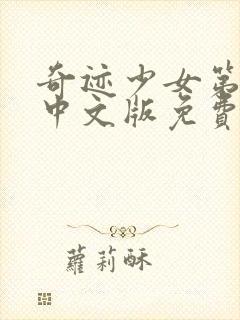 奇迹少女第
中文版免费
蘿莉酥